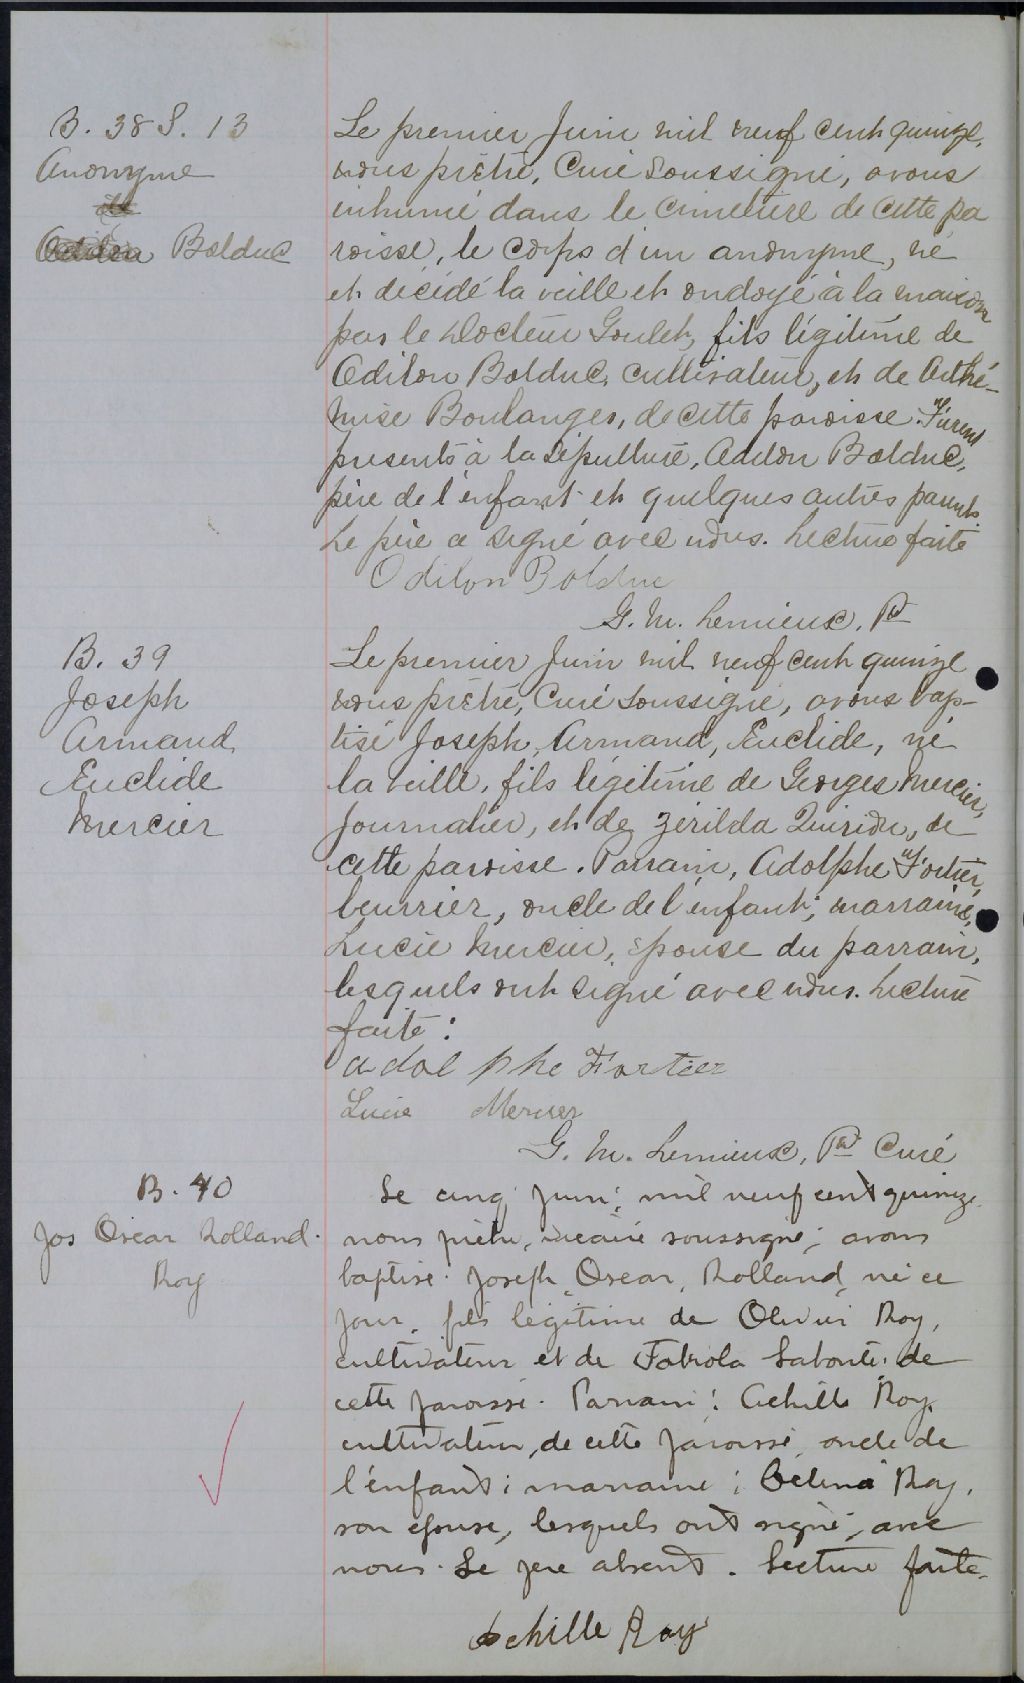 B. 38 S. 13
Anonyme
Bolduc
Le premier Juin mil neuf cent quinze,
nous prêtre, Curé soussigné, avons
inhumé dans le cimetière de cette pa
roisse, le corps d'un anonyme, né
et décédé la veille et ondoyé à la maison
par le Docteur Goulet, fils légitime de
Odilon Bolduc, cultivateur, et de Arthé-
mise Boulanger, de cette paroisse. Furent
presents à la sépulture, Odilon Bolduc,
père de l'enfant et quelques autres parents.
Le père a signé avec nous. Lecture faite
Odilon Bolduc
G. M. Lemieux, Ptre
B. 39
Joseph
Armand
Euclide
Mercier
Le premier Juin mil neuf cent quinze
nous prêtre, Curé soussigné, avons bap-
tisé Joseph, Armand, Euclide, né
la veille, fils légitime de Georges Mercier,
journalier, et de Zérilda Quirion, de
cette paroisse. Parrain, Adolphe Fortier,
beurrier, oncle de l'enfant; marraine,
Lucie Mercier, épouse du parrain,
lesquels ont signé avec nous. Lecture
faite:
adolphe Fortier
Lucie Mercier
G. M. Lemieux, Ptre Curé
B. 40
Jos Oscar Rolland
Roy
Le cinq juin, mil neuf cent quinze
nous prêtre, vicaire soussigné, avons
baptisé Joseph, Oscar, Rolland, né ce
jour, fils légitime de Olivier Roy,
cultivateur et de Fabiola Labonté, de
cette paroisse. Parrain: Achille Roy,
cultivateur, de cette paroisse, oncle de
l'enfant; marraine; Célina Roy,
son épouse, lesquels ont signé, avec
nous. Le père absent. Lecture faite.
Achille Roy